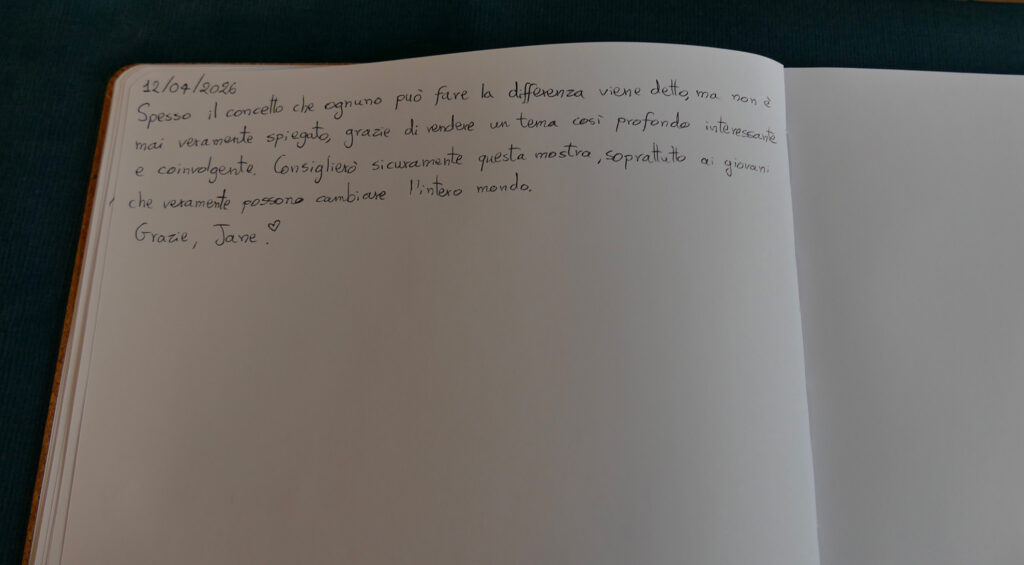 12/04/2026
Spesso il concetto che ognuno può fare la differenza viene detto, ma non è
mai veramente spiegato, grazie di rendere un tema così profondo interessante
e coinvolgente. Consiglierò sicuramente questa mostra, soprattutto ai giovani
che veramente possono cambiare l'intero mondo.
Grazie, Jane! ♡